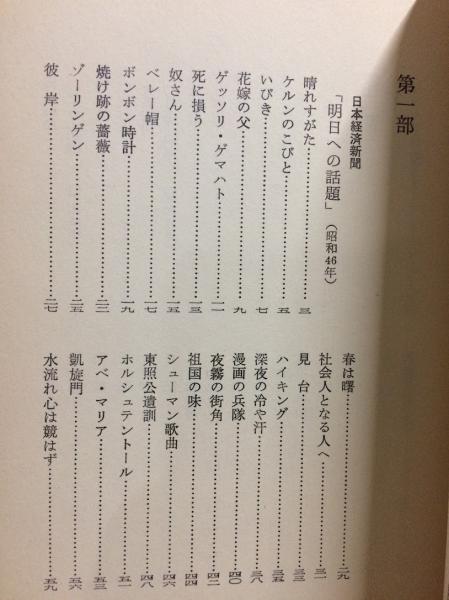 第一部
日本経済新聞
「明日への話題」(昭和46年)
晴れすがた……三
ケルンのこびと……五
いびき……七
花嫁の父……九
ゲッソリ・ゲマハト……一一
死に損う……一三
奴さん……一五
ベレー帽……一七
ボンボン時計……一九
焼け跡の薔薇……二二
ゾーリンゲン……二五
彼岸……二七
春は曙……二九
社会人となる人へ……三一
見台……三三
ハイキング……三五
深夜の冷や汗……三八
漫画の兵隊……四〇
夜霧の街角……四二
祖国の味……四四
シューマン歌曲……四六
東照公遺訓……四八
ホルシュテントール……五一
アベ・マリア……五三
凱旋門……五六
水流れ心は競はず……五九